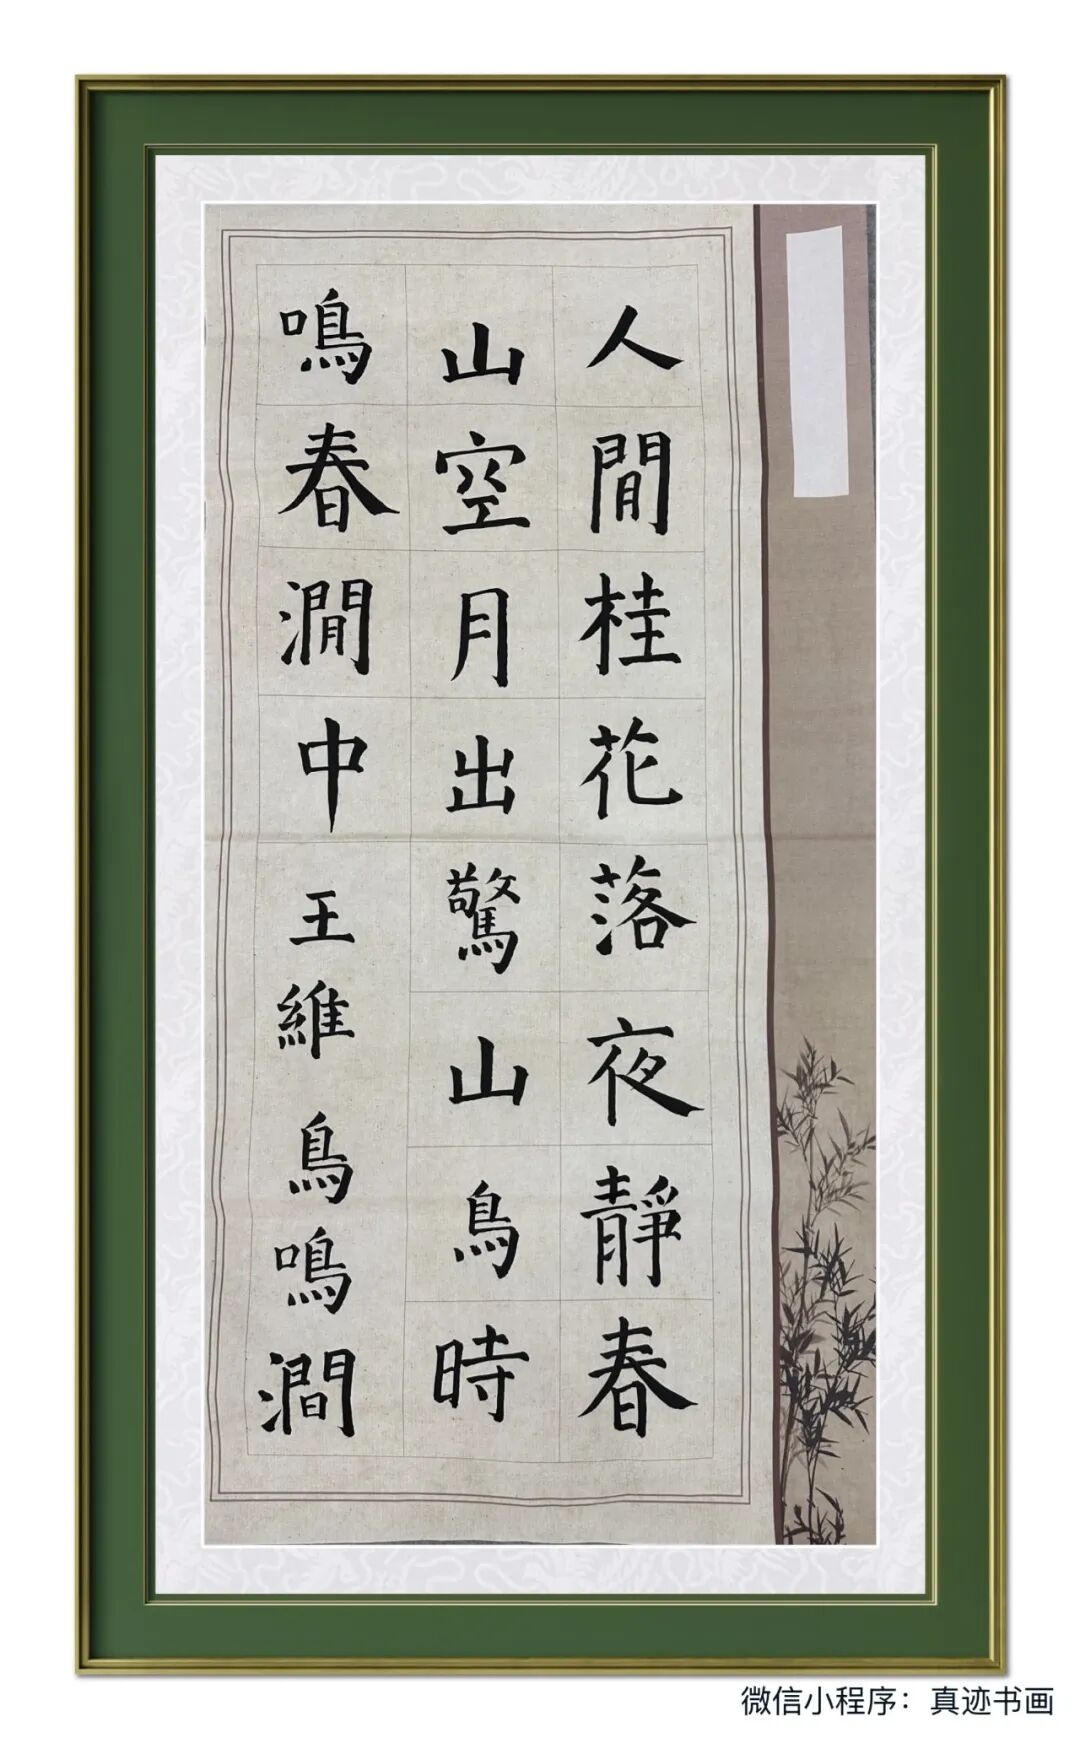 人閒桂花落夜靜春
山空月出驚山鳥時
鳴春澗中王維鳥鳴澗
微信小程序：真迹书画